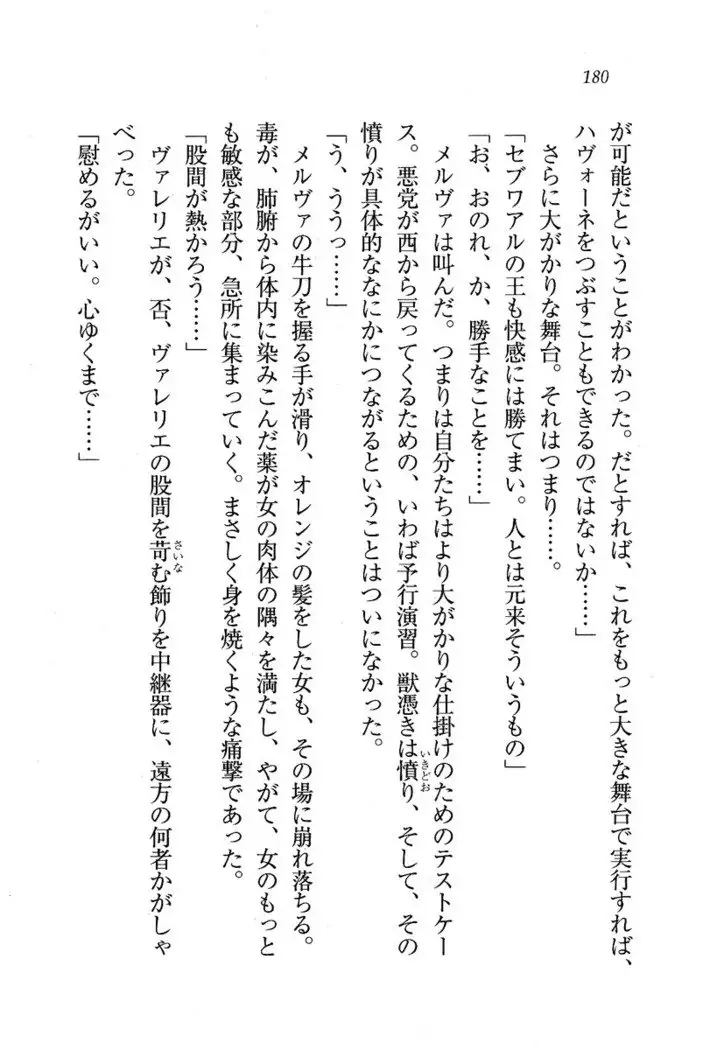 180
が可能だということがわかった。だとすれば、これをもっと大きな舞台で実行すれば、
ハヴォーネをつぶすこともできるのではないか……」
さらに大がかりな舞台。それはつまり……。
「セブワアルの王も快感には勝てまい。人とは元来そういうもの」
「お、おのれ、か、勝手なことを……」
メルヴァは叫んだ。つまりは自分たちはより大がかりな仕掛けのためのテストケー
ス。悪党が西から戻ってくるための、いわば予行演習。獣憑きは憤り、そして、その
いきどお
憤りが具体的ななにかにつながるということはついになかった。
「う、ううっ……」
メルヴァの牛刀を握る手が滑り、オレンジの髪をした女も、その場に崩れ落ちる。
毒が、肺腑から体内に染みこんだ薬が女の肉体の隅々を満たし、やがて、女のもっと
も敏感な部分、急所に集まっていく。まさしく身を焼くような痛撃であった。
「股間が熱かろう……」
ヴァレリエが、否、ヴァレリエの股間を苛む飾りを中継器に、遠方の何者かがしゃ
さいな
べった。
「慰めるがいい。心ゆくまで……」